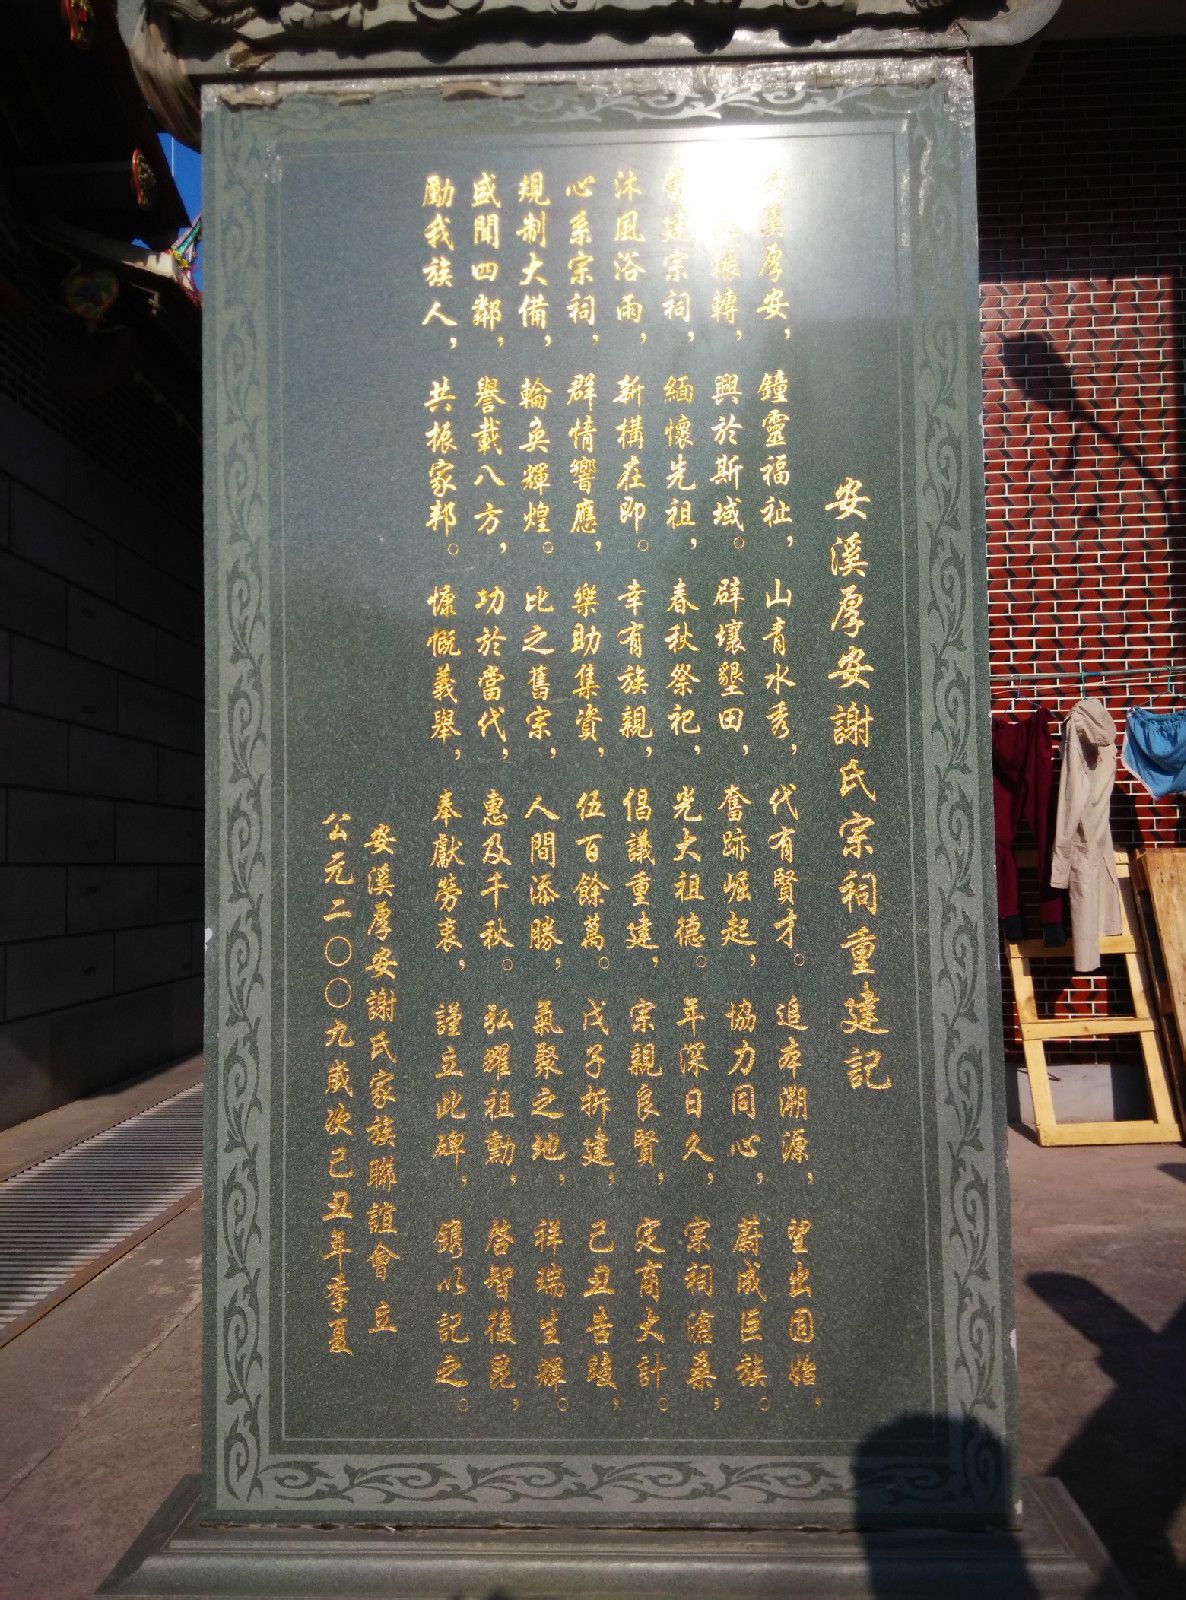 安溪厚安謝氏宗祠重建記
溪厚安，鐘靈福祉，山青水秀，代有賢才。追本溯源，望出固始，
轉，興於斯域。辟壤墾田，奮跡崛起，協力同心，蔚成巨族。
建宗祠，緬懷先祖，春秋祭祀，光大祖德。年深日久，宗祠滄桑，
沐風浴雨，新構在即。幸有族親，倡議重建，宗親良賢，定商大計。
心系宗祠，群情響應，樂助集資，伍百餘萬。戊子拆建，己丑告竣，
規制大備，輪奐輝煌。比之舊宗，人間添勝，氣聚之地，祥瑞生輝。
盛聞四鄰，譽載八方，功於當代，惠及千秋。弘耀祖勳，啓智後昆，
勵我族人，共振家邦。慷慨義舉，奉獻勞衷，謹立此碑，鐫以記之。
安溪厚安謝氏家族聯誼會 立
公元二〇〇九歲次己丑年季夏